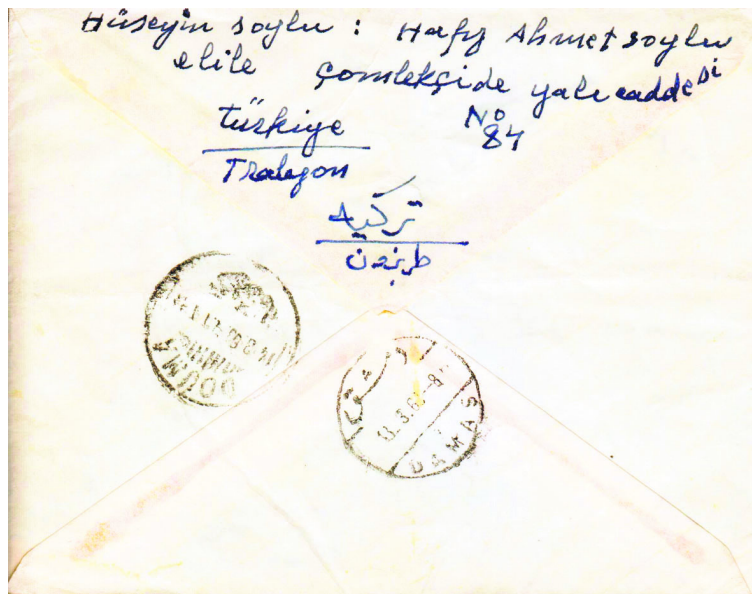 Hüseyin soylu : Hafız Ahmet soylu
elile Çomlekçide yalı caddesi
No
84
türkiye
Trabzon
تركيه
طربزون
DOUMA
دمشق
DAMAS